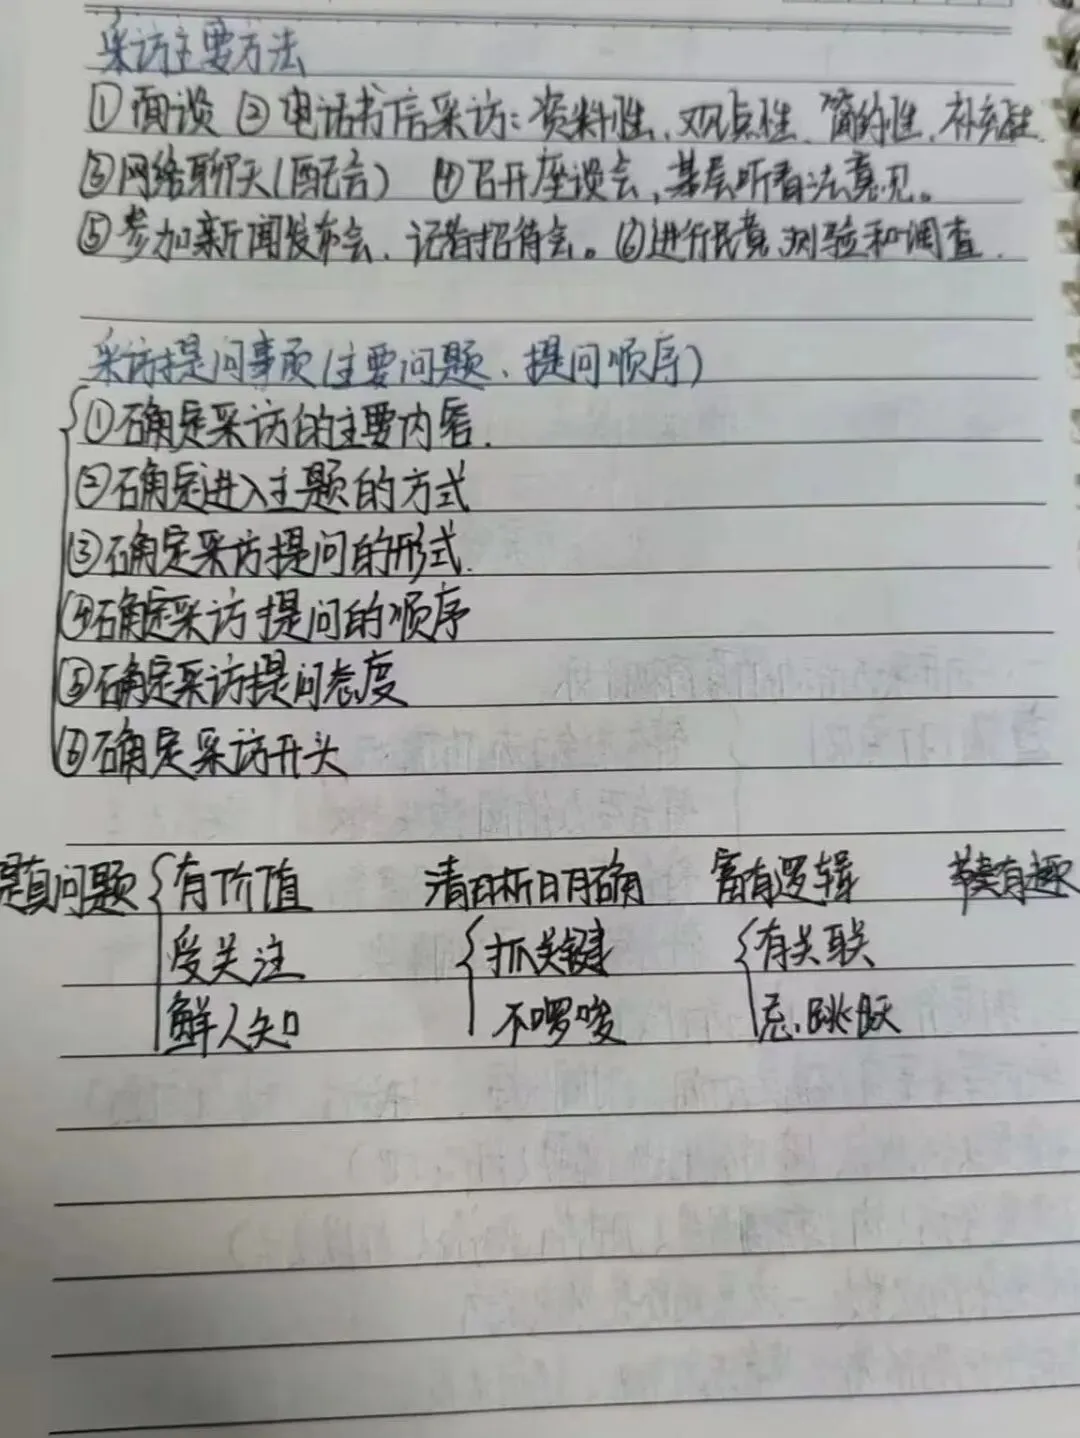 采访主要方法
①面谈 ②电话书信采访：资料性、观点性、简约性、补充性
③网络聊天(配合) ④召开座谈会，基层听看法意见。
⑤参加新闻发布会、记者招待会。⑥进行民意测验和调查.
采访提问事项(主要问题、提问顺序)
①确定采访的主要内容.
②确定进入主题的方式
③确定采访提问的形式.
④确定采访提问的顺序
⑤确定采访提问态度
⑥确定采访开头
问题 有价值 清晰明确 富有逻辑 有趣
受关注 抓关键 有关联
鲜人知 不啰唆 忌跳跃